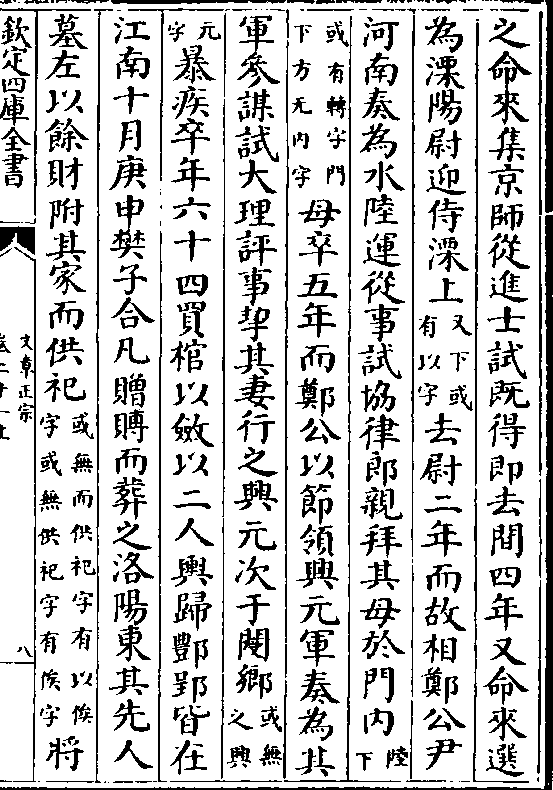 之命來集京師從進士試既得即去間四年又命來選
為溧陽尉迎侍溧上又下或有以字去尉二年而故相鄭公尹
河南奏為水陸運從事試協律郎親拜其母於門内陸下
或有轉字門下方无内字母卒五年而鄭公以節領興元軍奏為其
軍參謀試大理評事挈其妻行之興元次于閿鄉或無之興
元字暴疾卒年六十四買棺以斂以二人輿歸酆郢皆在
江南十月庚申樊子合凡贈賻而葬之洛陽東其先人
墓左以餘財附其家而供祀或無而供祀字有以俟字或無供祀字有俟字將
欽定四庫全書
文章正宗
八